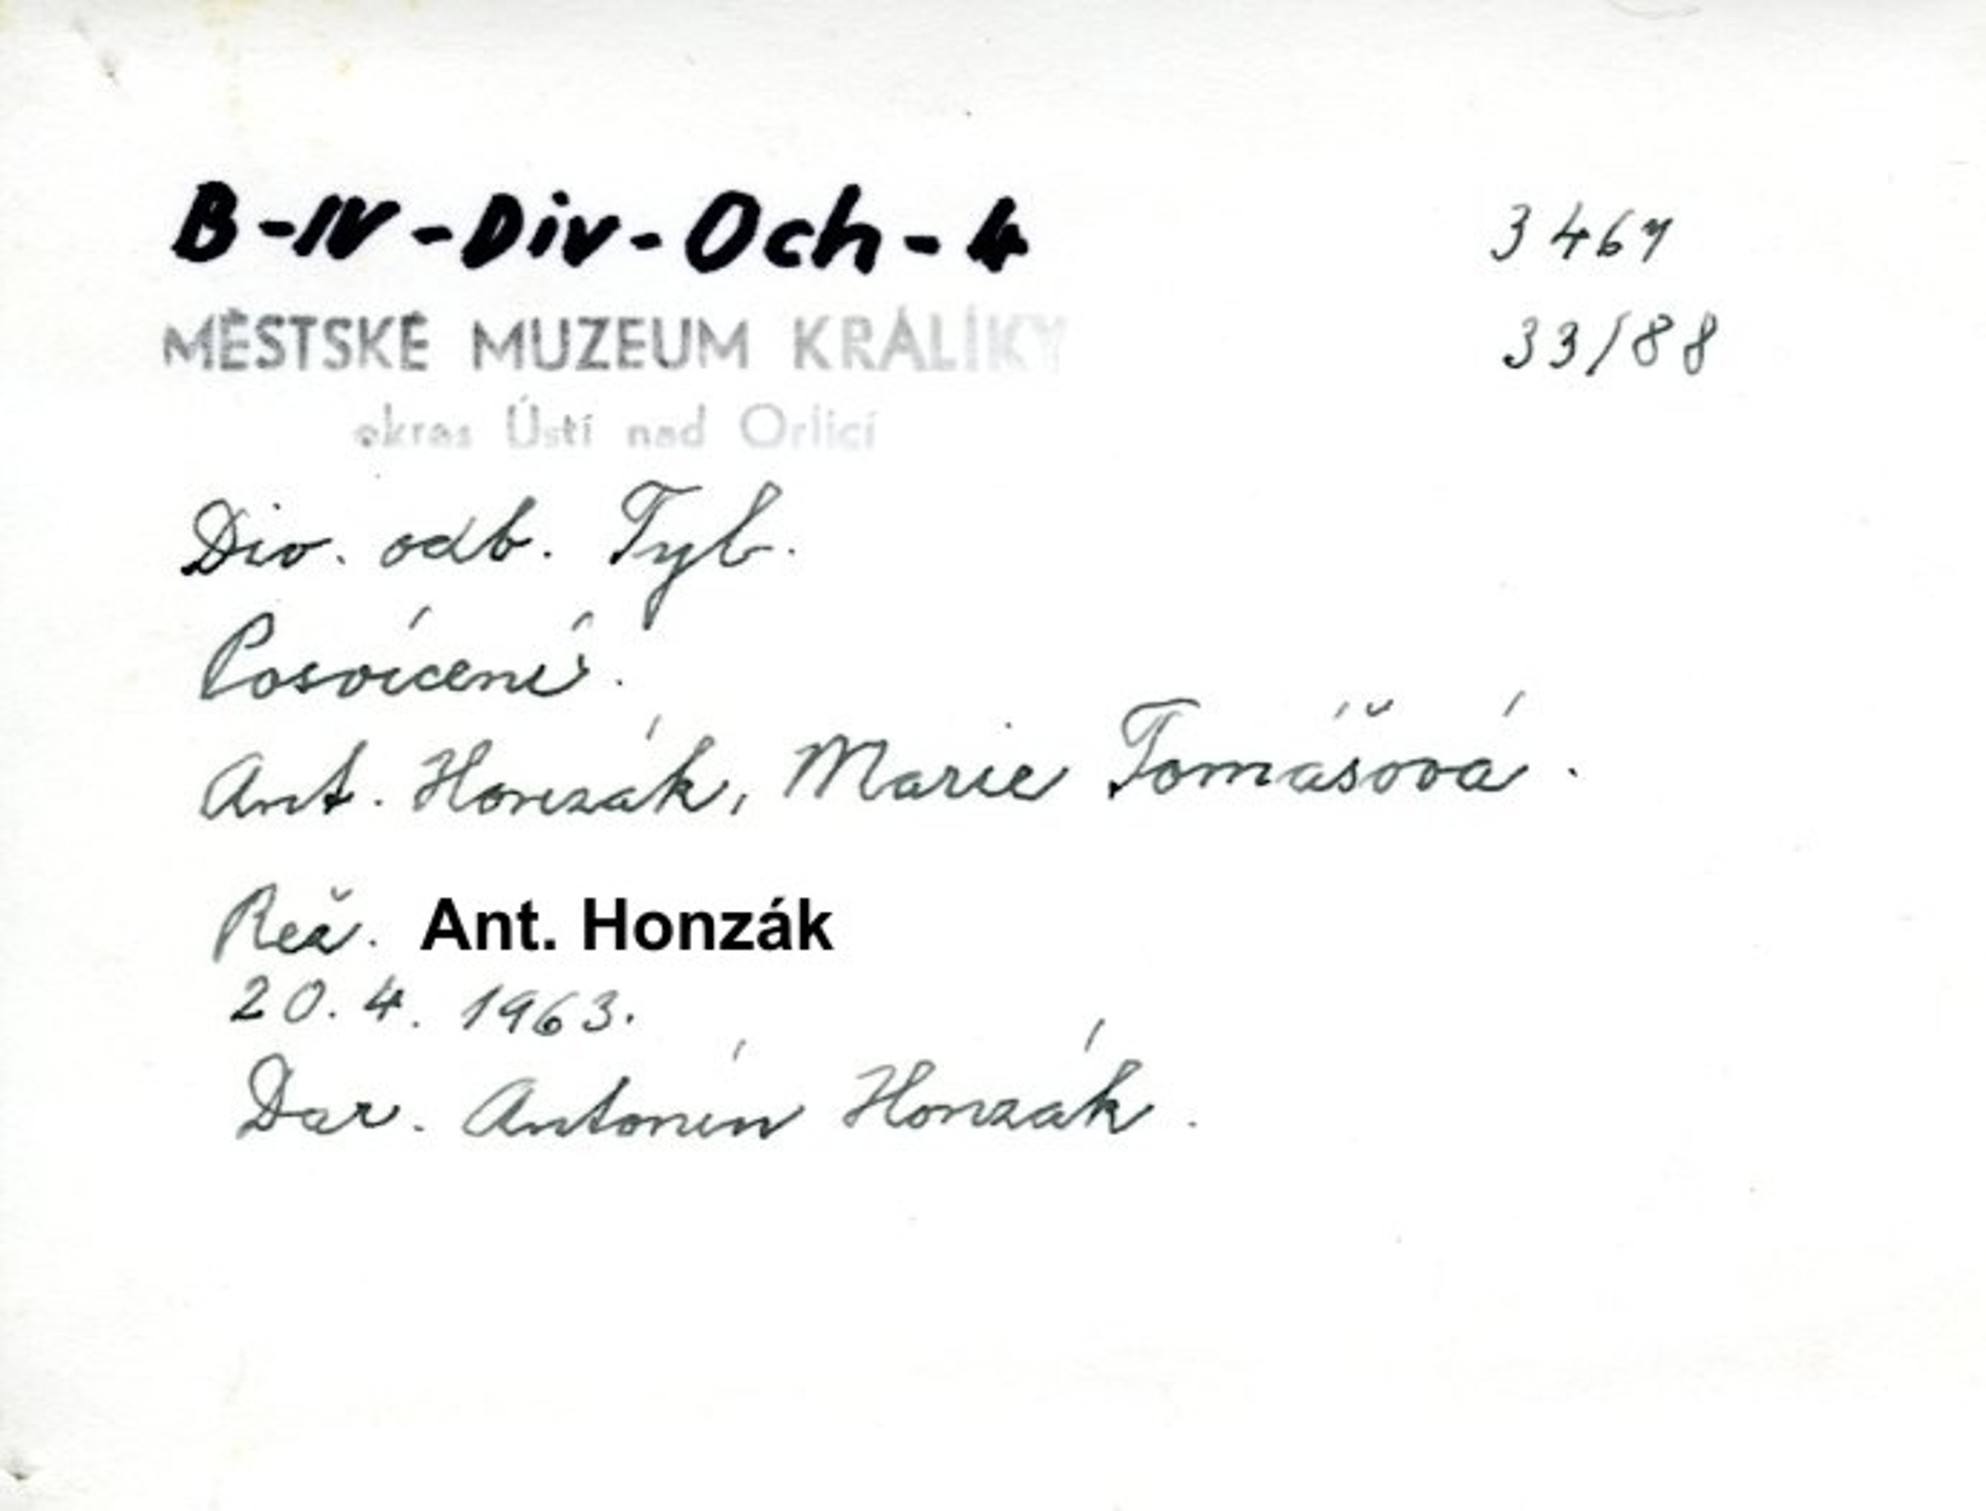 B-IV-Div-Och-4
3467
33/88
MĚSTSKÉ MUZEUM KRÁLÍKY
okres Ústí nad Orlicí
Div. odb. Tyl.
Posvícení.
Ant. Honzák, Marie Tomášová.
Rež. Ant. Honzák
20. 4. 1963.
Dar. Antonín Honzák.